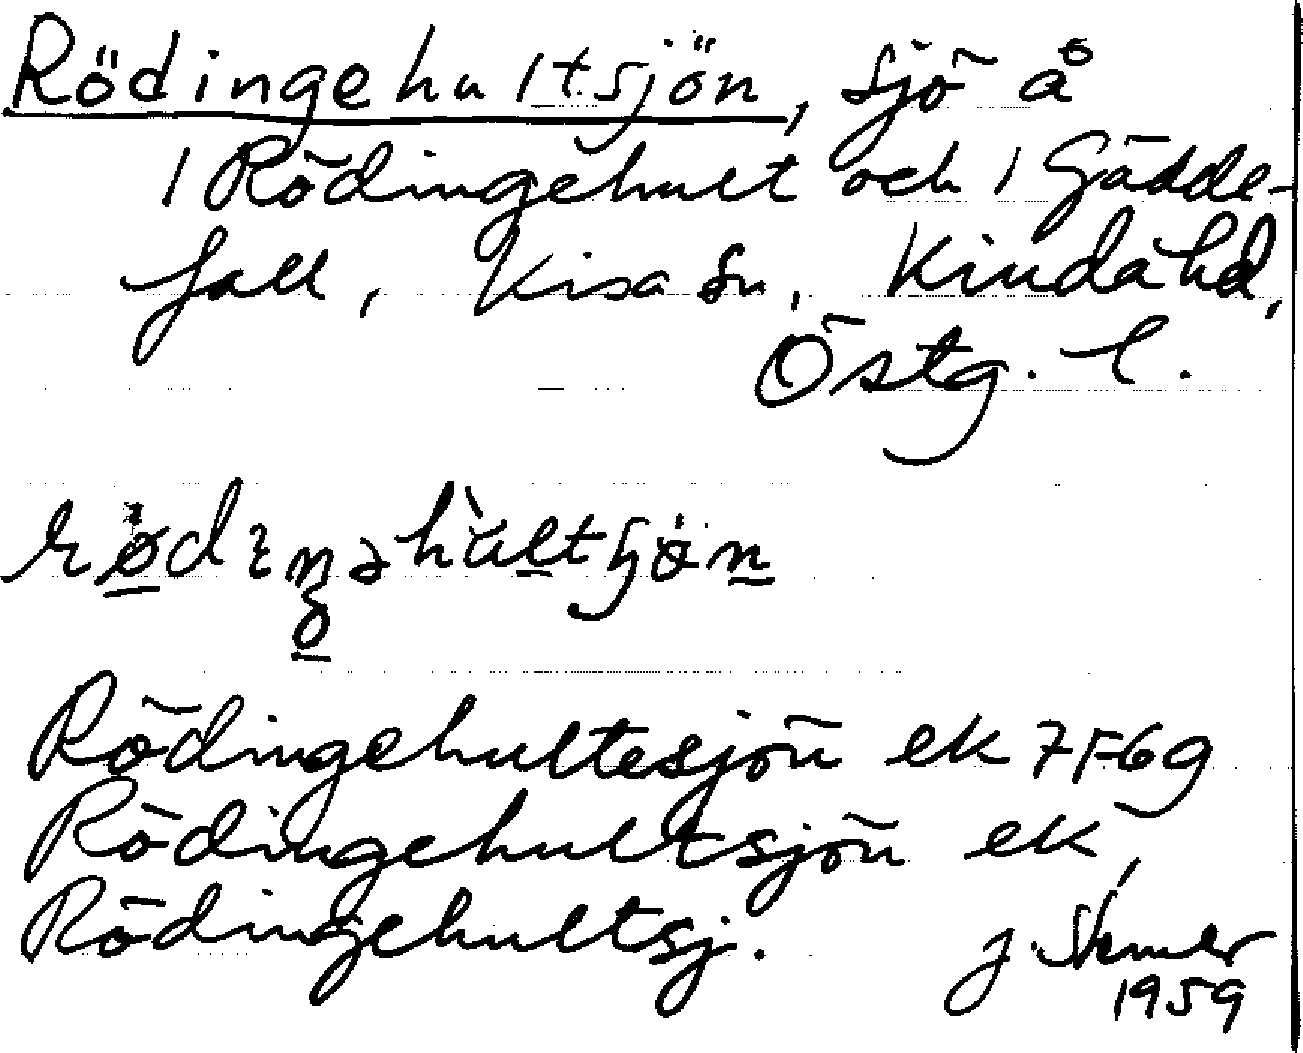 Rödingehultsjön, sjö å
1 Rödingehult och 1 Gädde-
fall, Kisa sn, Kinda hd,
Östg. l.
Rödingehultesjön ek 7F6g
Rödingehultsjön ek,
Rödingehultsj.
J.
1959